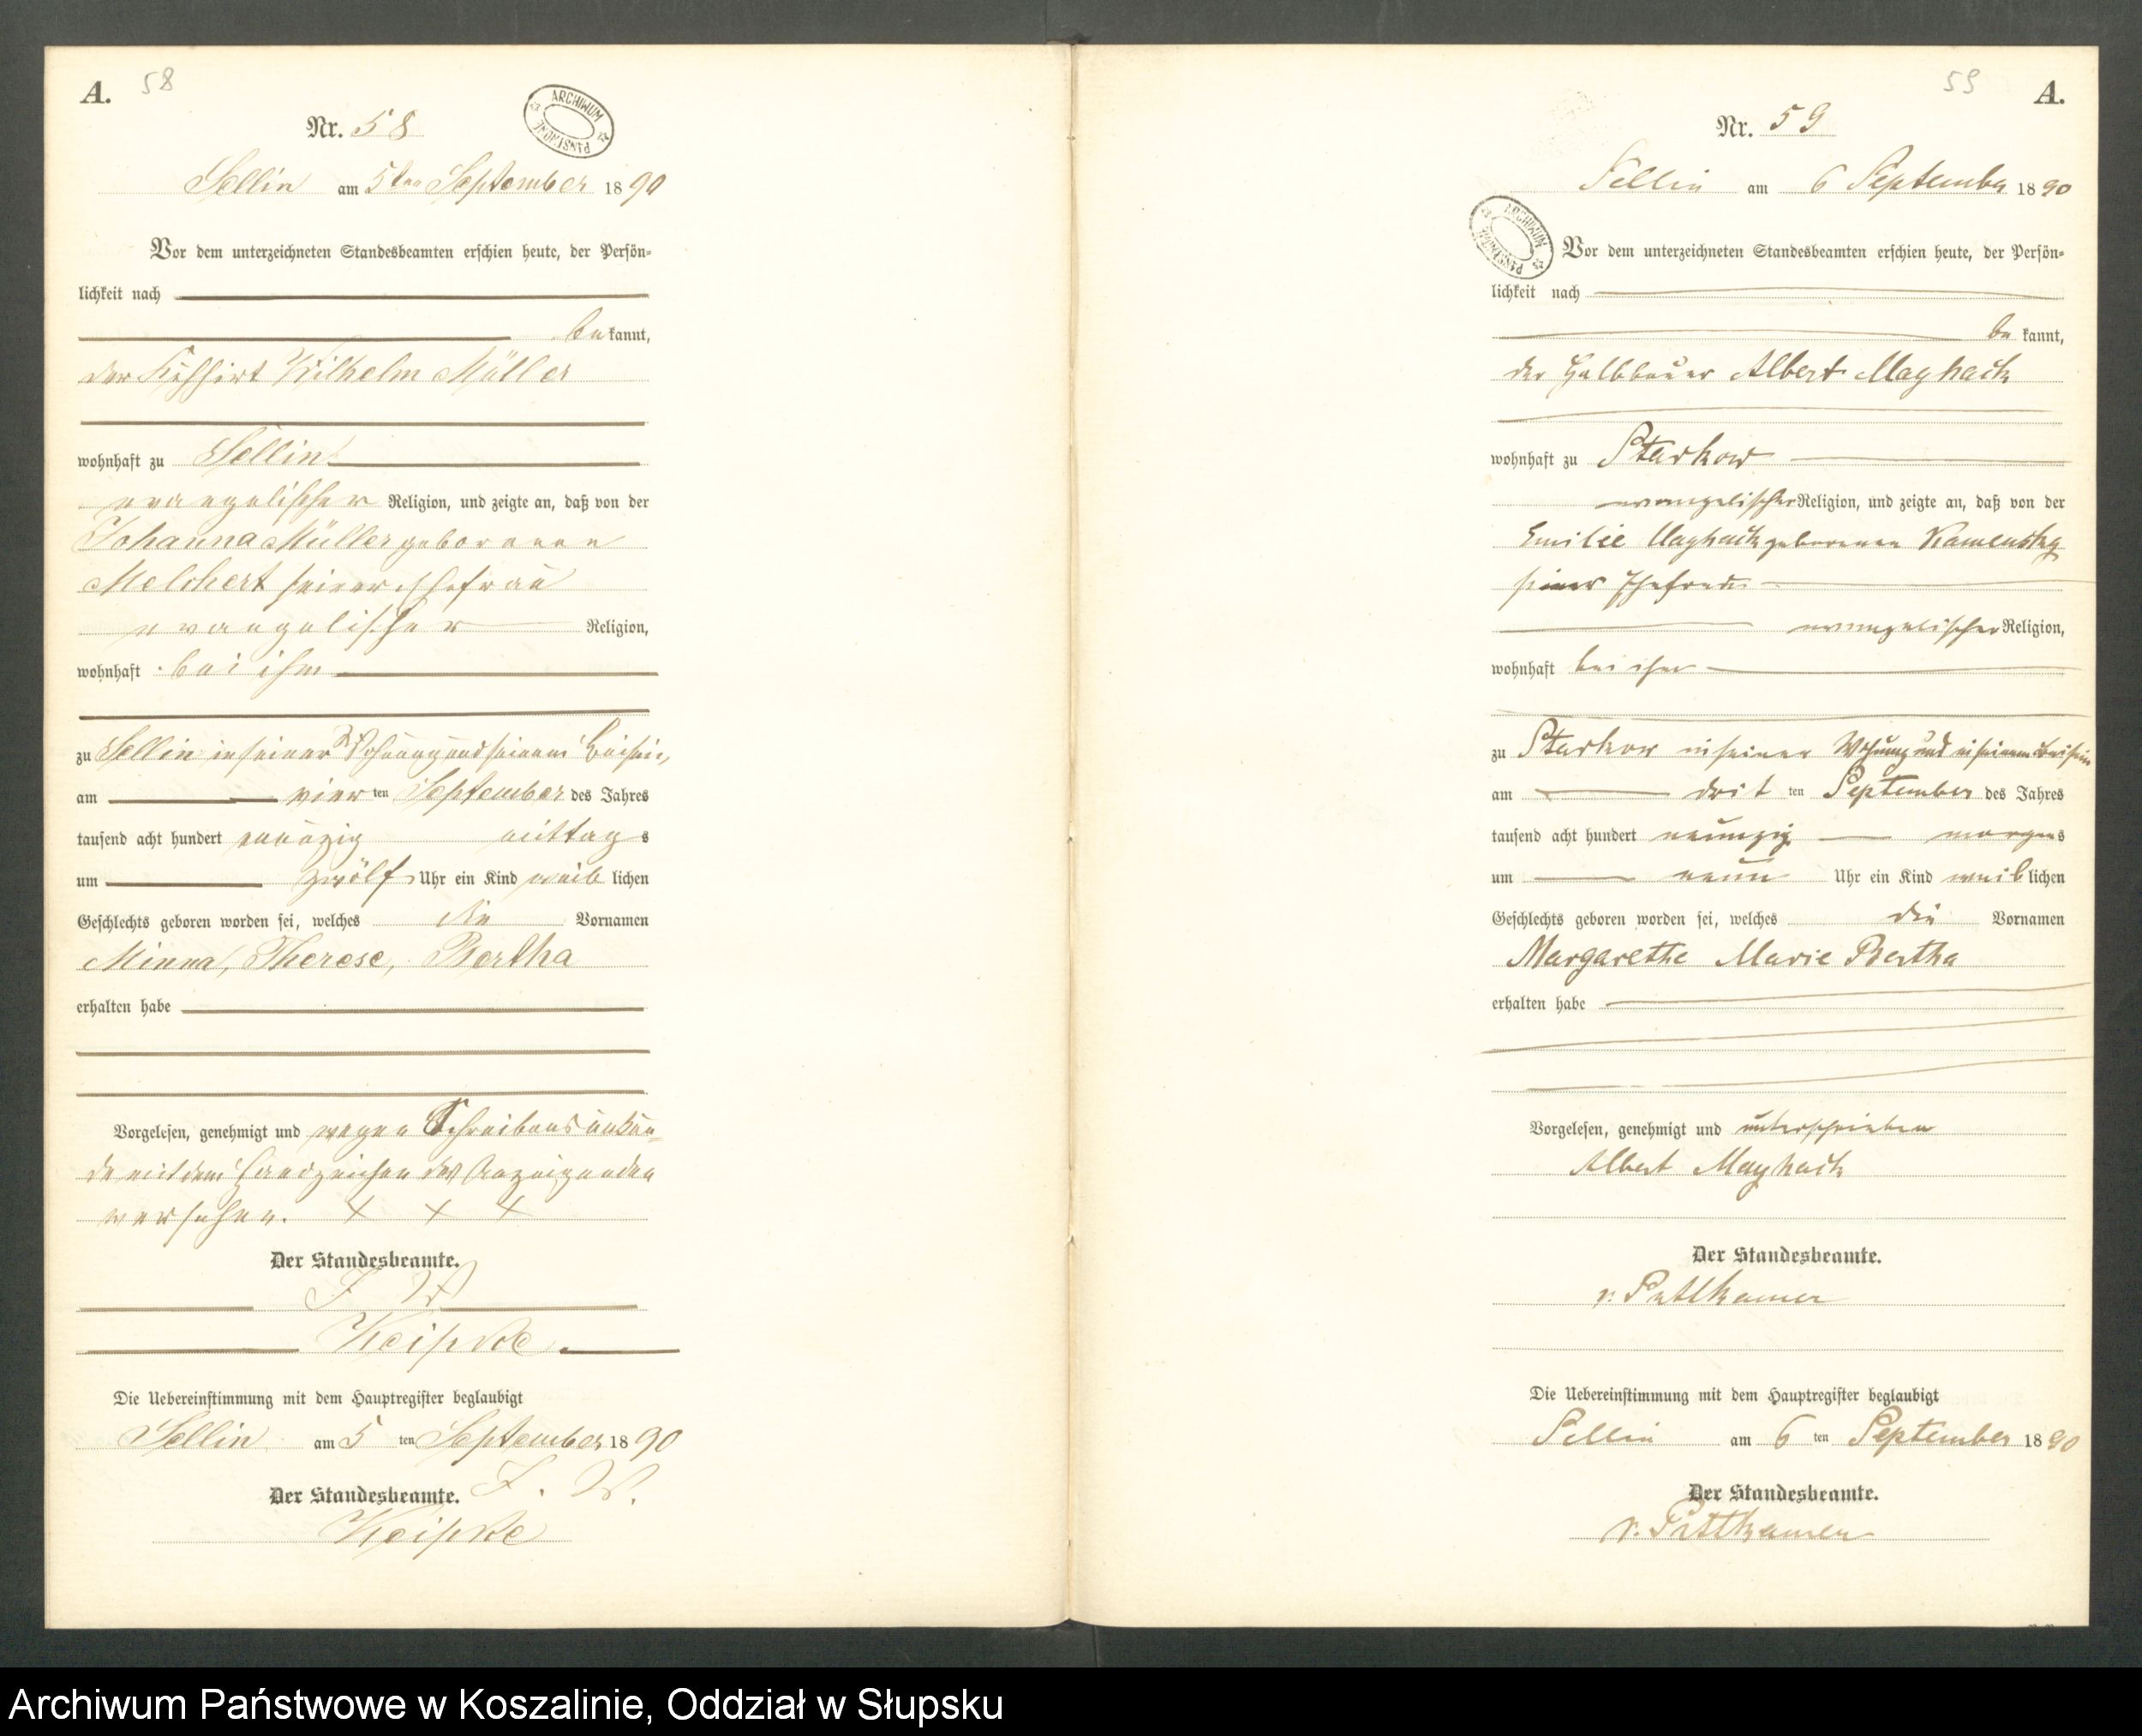 A. 58
ARCHIWUM PAŃSTWOWE
Nr. 58
Sellin am 5ten September 1890
Vor dem unterzeichneten Standesbeamten erschien heute, der Persön-
lichkeit nach
bekannt,
der Kuhhirt Wilhelm Müller
wohnhaft zu Sellin
evangelischer Religion, und zeigte an, daß von der
Johanna Müller geborenen
Melchert seiner Ehefrau
evangelischer Religion,
wohnhaft bei ihm
zu Sellin in seiner Wohnung und seinem Beisein,
am vierten September des Jahres
tausend acht hundert neunzig mittags
um zwölf Uhr ein Kind weiblichen
Geschlechts geboren worden sei, welches die Vornamen
Minna, Therese, Bertha
erhalten habe
Vorgelesen, genehmigt und wegen Schreibensunkun-
de mit dem Handzeichen des Anzeigenden
versehen. X X X
Der Standesbeamte.
I W
Die Uebereinstimmung mit dem Hauptregister beglaubigt
Sellin am 5ten September 1890
Der Standesbeamte. I. W.
59 A.
Nr. 59
Sellin am 6 September 1890
ARCHIWUM PAŃSTWOWE
Vor dem unterzeichneten Standesbeamten erschien heute, der Persön-
lichkeit nach
bekannt,
der Halbbauer Albert Maghack
wohnhaft zu Starkow
evangelischer Religion, und zeigte an, daß von der
Emilie Maghack geborenen Kamensky
seiner Ehefrau
evangelischer Religion,
wohnhaft bei ihm
zu Starkow in seiner Wohnung und in seinem Beisein
am dritten September des Jahres
tausend acht hundert neunzig morgens
um neun Uhr ein Kind weiblichen
Geschlechts geboren worden sei, welches die Vornamen
Margarethe Marie Bertha
erhalten habe
Vorgelesen, genehmigt und unterschrieben
Albert Maghack
Der Standesbeamte.
v. Puttkamer
Die Uebereinstimmung mit dem Hauptregister beglaubigt
Sellin am 6ten September 1890
Der Standesbeamte.
v. Puttkamer
Archiwum Państwowe w Koszalinie, Oddział w Słupsku